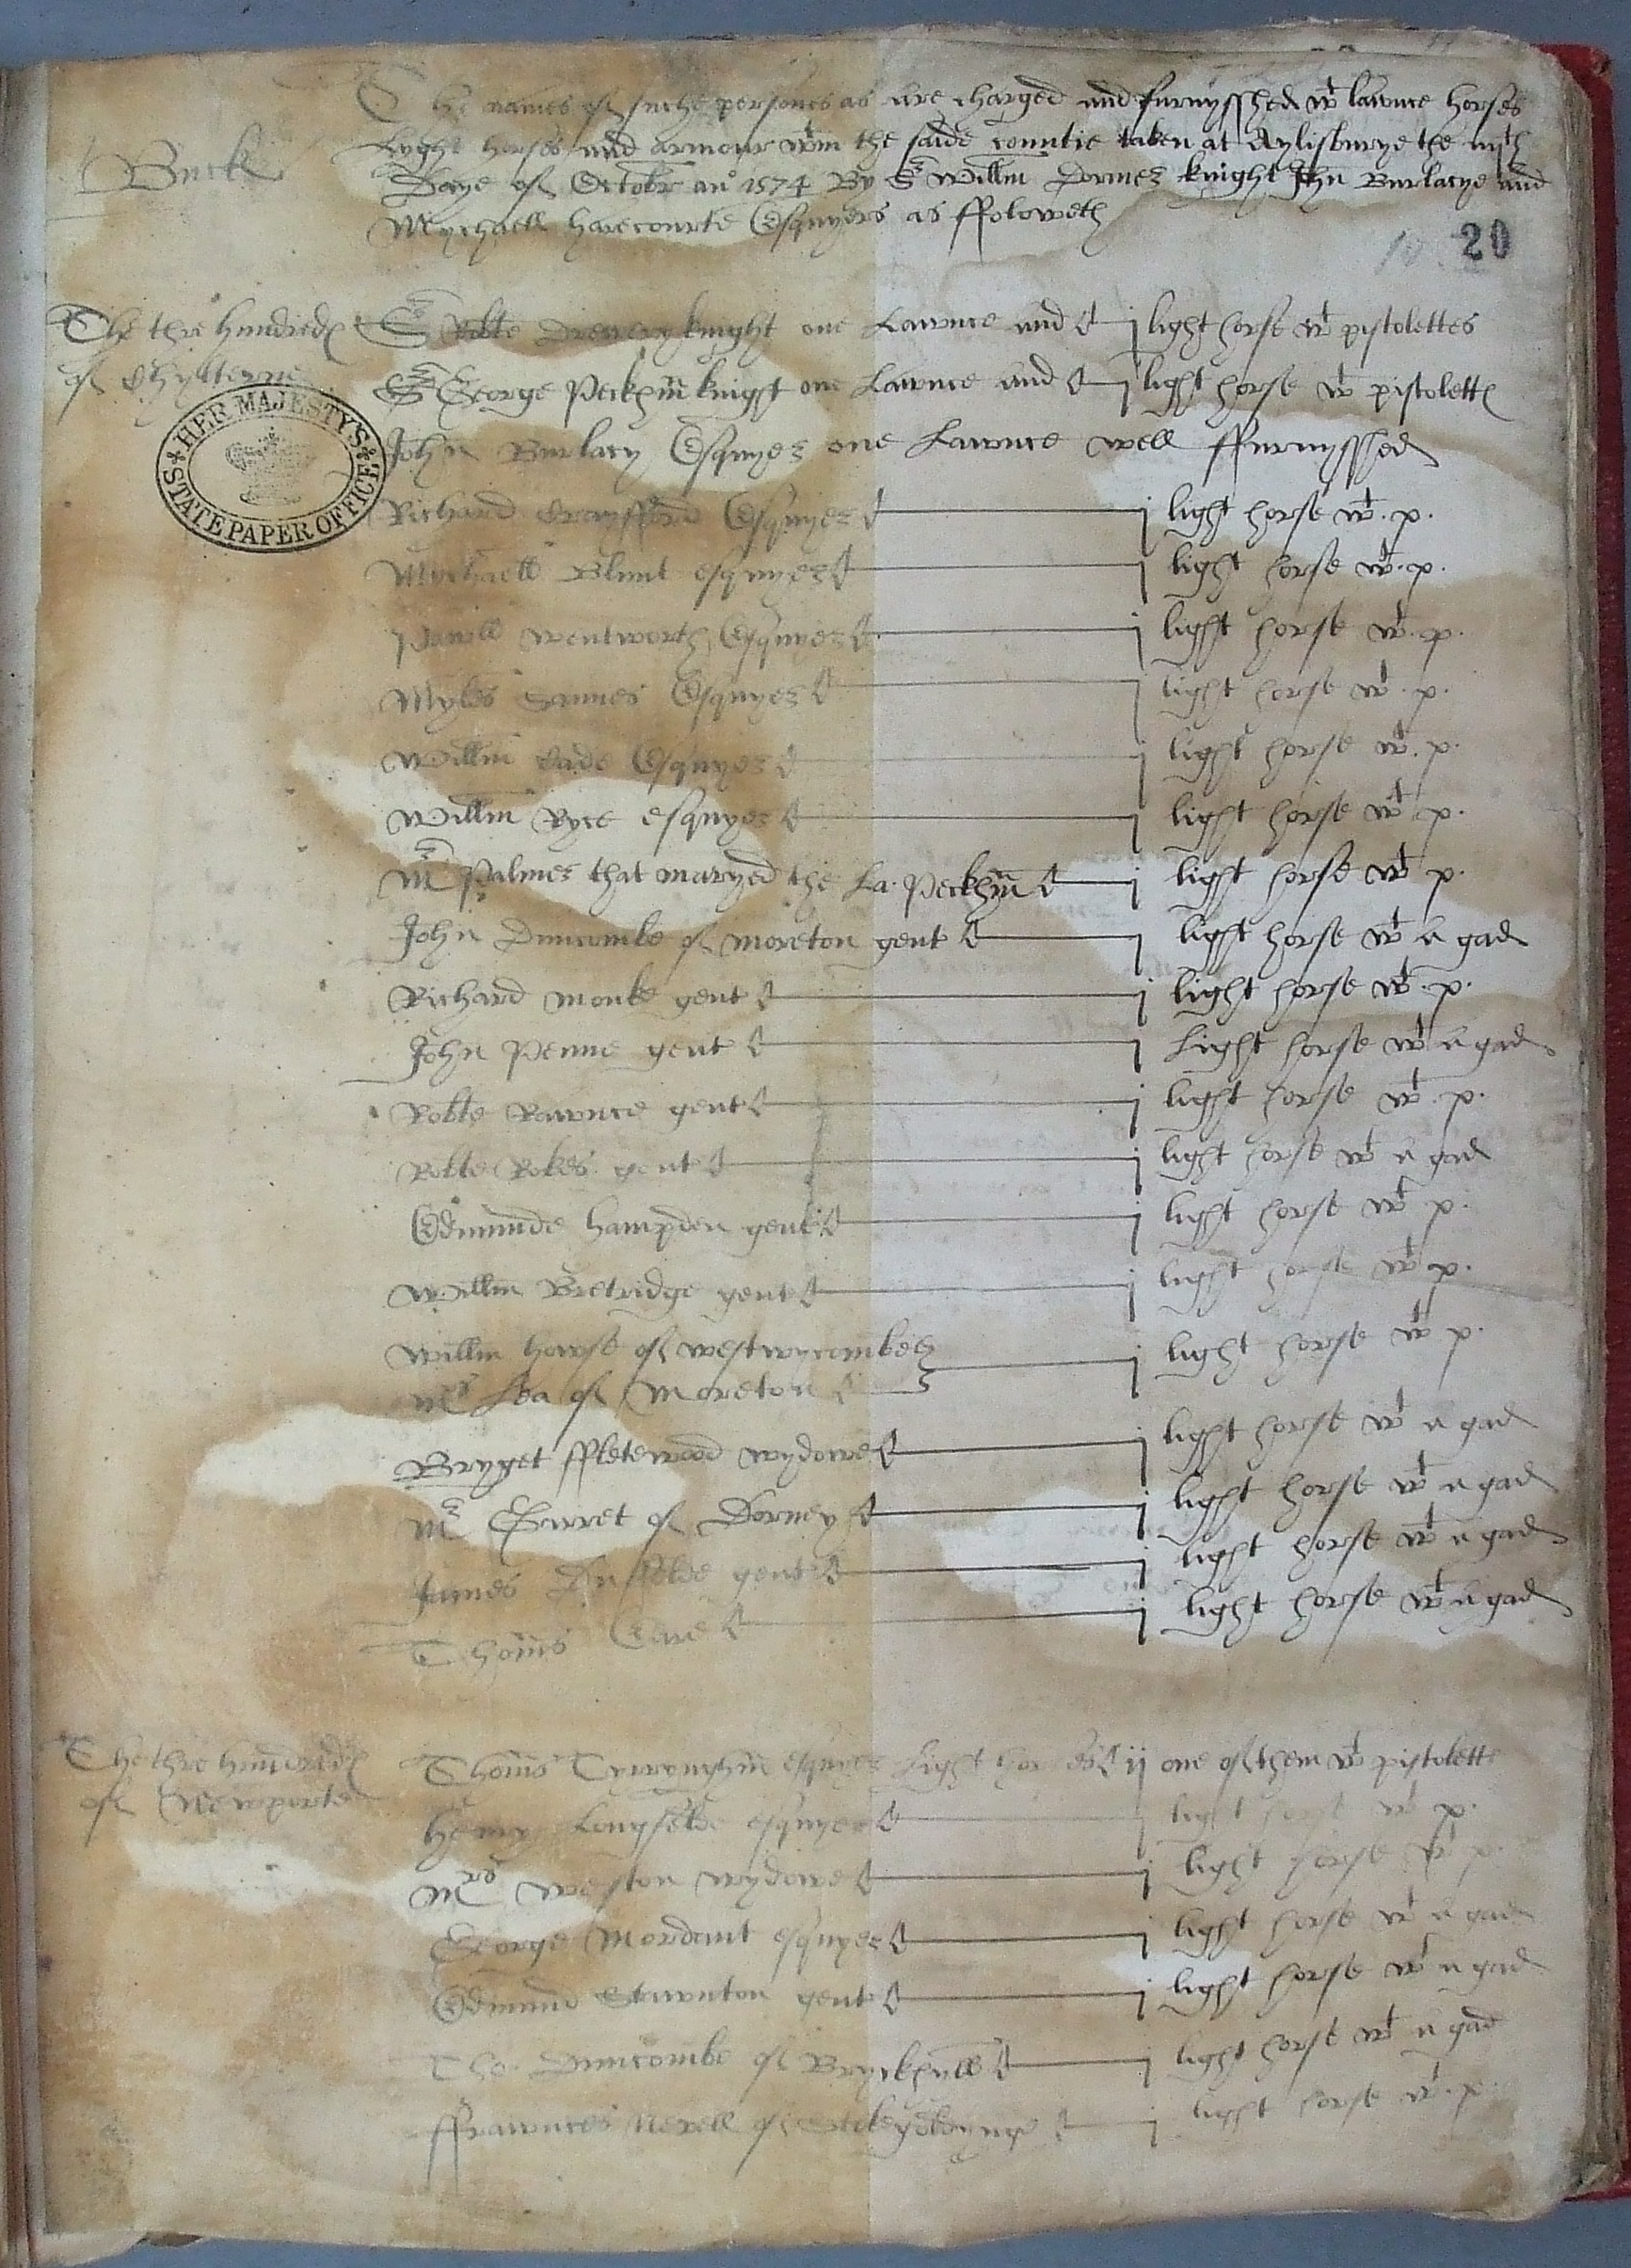 The names of suche persones as are charged and furnysshed wt lawnce horses
Buck
Lyght horses and armour wtin the saide countie taken at Aylisburye the
Daye of Octobr ano 1574 By Sr Willm Dormer knight Jhn Burlacye and
Mychaell harecourte Esquyers as ffoloweth
20
The thre hundred of Chylterne
Sr Robte Drewry knight one Lawnce and j light horse wt pistolettes
Sr George Peckhm knight one Lawnce and j light horse wt pistolett
HER MAJESTY'S STATE PAPER OFFICE
John Burlacy Esquyer one Lawnce well ffurnysshed
Richard Esquyer j light horse wt . p .
Mychaell Blunt esquyer j light horse wt . p .
Pawll wentworth Esquyer j light horse wt . p .
Myles Sannes Esquyer j light horse wt . p .
Willm Esquyer j light horse wt . p .
Willm Ryce esquyer j light horse wt p .
Mr Palmer that maryed the La . Peckhm j light horse wt p .
John Duncombe of moreton gent j light horse wt a gad
Richard monke gent j light horse wt . p .
John Penne gent j Light horse wt a gad
Robte Rawnce gent j light horse wt . p .
Robte Rokes gent j light horse wt a gad
Edmunde hampden gent j light horse wt p .
Willm Bretridge gent j light horse wt p .
Willm howse of westwycombe
j light horse wt p .
Mr Lea of Moreton
Bryget ffletewood wydowe j light horse wt a gad
Mr Garret of Dorney j light horse wt a gad
James gent j light horse wt a gad
Thoms j light horse wt a gad
The thre hundred of Newporte
Thoms Tyrryngham esquyer Light horses ij one of them wt pistolett
Henry Longfelde esquyer j light horse wt p .
Mrs Weston wydowe j light horse wt p .
George Mordant esquyer j light horse wt a gad
Edmund Stawnton gent j light horse wt a gad
Tho . Duncombe of Bryckhyll j light horse wt a gad
ffrawnces Nevell of j light horse wt . p .